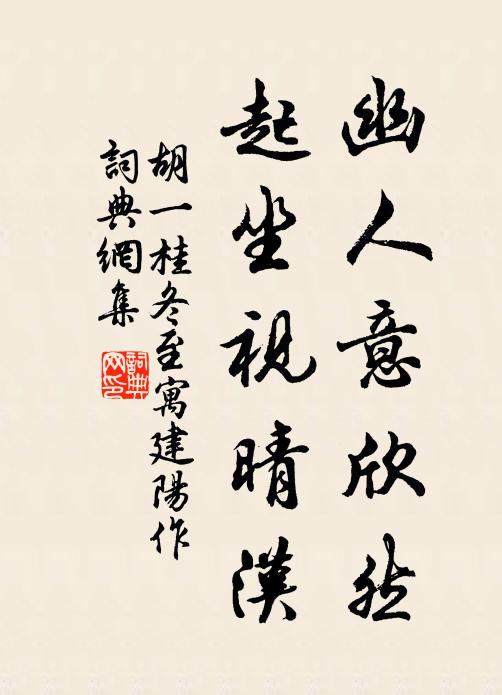 幽人意欣然
起坐視晴漢
胡一桂冬至寓建陽作
詞典網集
詞典网印